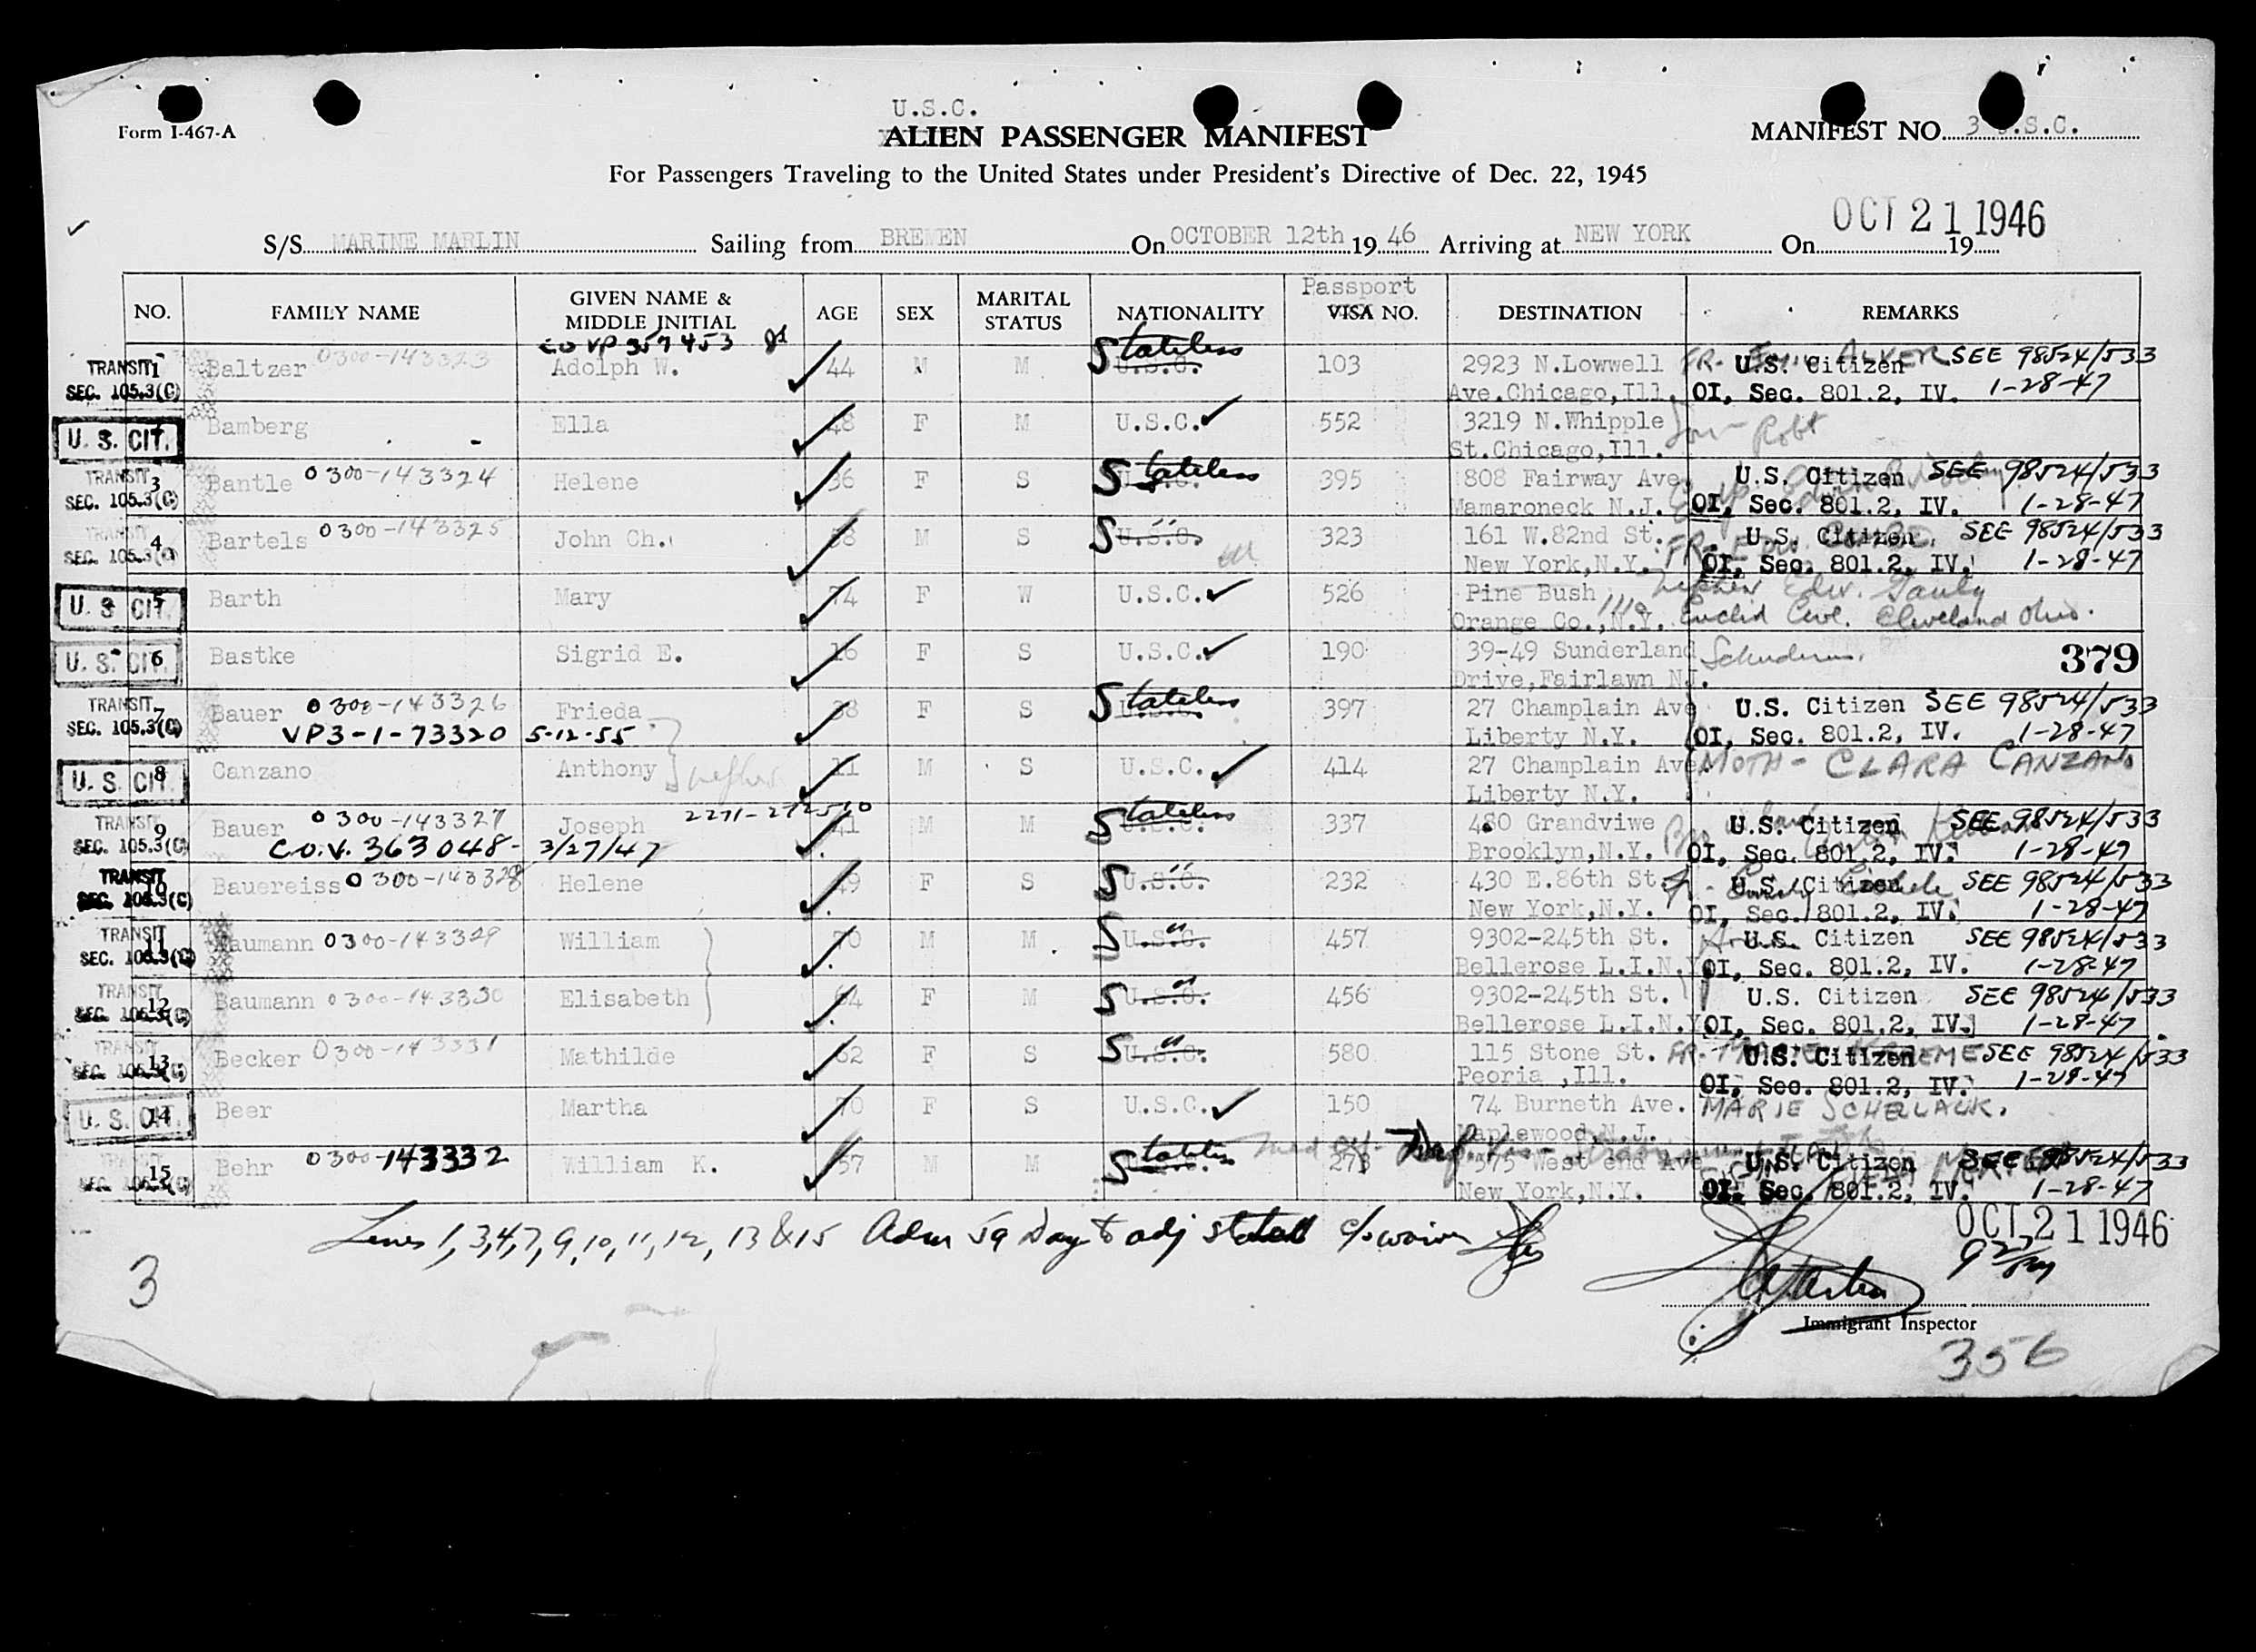 U.S.C.
Form I-467-A
ALIEN PASSENGER MANIFEST
MANIFEST NO. 3 U.S.C.
For Passengers Traveling to the United States under President's Directive of Dec. 22, 1945
OCT 21 1946
S/S MARINE MARLIN Sailing from BREMEN On OCTOBER 12th 19 46 Arriving at NEW YORK On 19
Passport
NO. FAMILY NAME GIVEN NAME & MIDDLE INITIAL AGE SEX MARITAL STATUS NATIONALITY VISA NO. DESTINATION REMARKS
CO VP 357453
TRANSIT 1 Baltzer 0300-143323 Adolph W. 44 M M Stateless U.S.C. 103 2923 N.Lowwell U.S. Citizen SEE 98524/533
SEC. 105.3(C) Ave.Chicago,Ill. OI, Sec. 801.2, IV. 1-28-47
U. S. CIT. Bamberg Ella 48 F M U.S.C. 552 3219 N.Whipple
St.Chicago,Ill. Son Robt
TRANSIT 3 Bantle 0300-143324 Helene 36 F S Stateless U.S.C. 395 808 Fairway Ave. U.S. Citizen SEE 98524/533
SEC. 105.3(C) Mamaroneck N.J. OI, Sec. 801.2, IV. 1-28-47
TRANSIT 4 Bartels 0300-143325 John Ch. 38 M S S " U.S.C. 323 161 W.82nd St. U.S. Citizen SEE 98524/533
SEC. 105.3(C) New York,N.Y. OI, Sec. 801.2, IV. 1-28-47
U. S. CIT. 5 Barth Mary 74 F W U.S.C. 526 Pine Bush nephew Edw.
Orange Co.,N.Y. Euclid Cleveland Ohio.
U. S. CIT. 6 Bastke Sigrid E. 16 F S U.S.C. 190 39-49 Sunderland 379
Drive,Fairlawn N.J.
TRANSIT 7 Bauer 0300-143326 Frieda 38 F S Stateless U.S.C. 397 27 Champlain Ave U.S. Citizen SEE 98524/533
SEC. 105.3(C) VP3-1-73320 5-12-55 Liberty N.Y. OI, Sec. 801.2, IV. 1-28-47
U. S. CIT. 8 Canzano Anthony nephew 11 M S U.S.C. 414 27 Champlain Ave. MOTH- CLARA CANZANO
Liberty N.Y.
TRANSIT 9 Bauer 0300-143327 Joseph 41 M M Stateless U.S.C. 337 480 Grandviwe U.S. Citizen SEE 98524/533
SEC. 105.3(C) C.O.V. 363048- 3/27/47 Brooklyn,N.Y. OI, Sec. 801.2, IV. 1-28-47
TRANSIT 10 Bauereiss 0300-143328 Helene 49 F S S " U.S.C. 232 430 E.86th St. U.S. Citizen SEE 98524/533
SEC. 105.3(C) New York,N.Y. OI, Sec. 801.2, IV. 1-28-47
TRANSIT 11 Baumann 0300-143329 William 70 M M S " U.S.C. 457 9302-245th St. U.S. Citizen SEE 98524/533
SEC. 105.3(C) Bellerose L.I.N.Y. OI, Sec. 801.2, IV. 1-28-47
TRANSIT 12 Baumann 0300-143330 Elisabeth 64 F M S " U.S.C. 456 9302-245th St. U.S. Citizen SEE 98524/533
SEC. 105.3(C) Bellerose L.I.N.Y. OI, Sec. 801.2, IV. 1-28-47
TRANSIT 13 Becker 0300-143331 Mathilde 62 F S S " U.S.C. 580 115 Stone St. U.S. Citizen SEE 98524/533
SEC. 105.3(C) Peoria ,Ill. OI, Sec. 801.2, IV. 1-28-47
U. S. CIT. 14 Beer Martha 70 F S U.S.C. 150 74 Burneth Ave. MARIE SCHELLACK.
Maplewood,N.J.
TRANSIT 15 Behr 0300-143332 William K. 57 M M Stateless U.S.C. 273 575 West end Ave U.S. Citizen SEE 98524/533
SEC. 105.3(C) New York,N.Y. OI, Sec. 801.2, IV. 1-28-47
Lines 1, 3, 4, 7, 9, 10, 11, 12, 13 & 15 Adm 59 Day to adj
OCT 21 1946
3
Immigrant Inspector
356